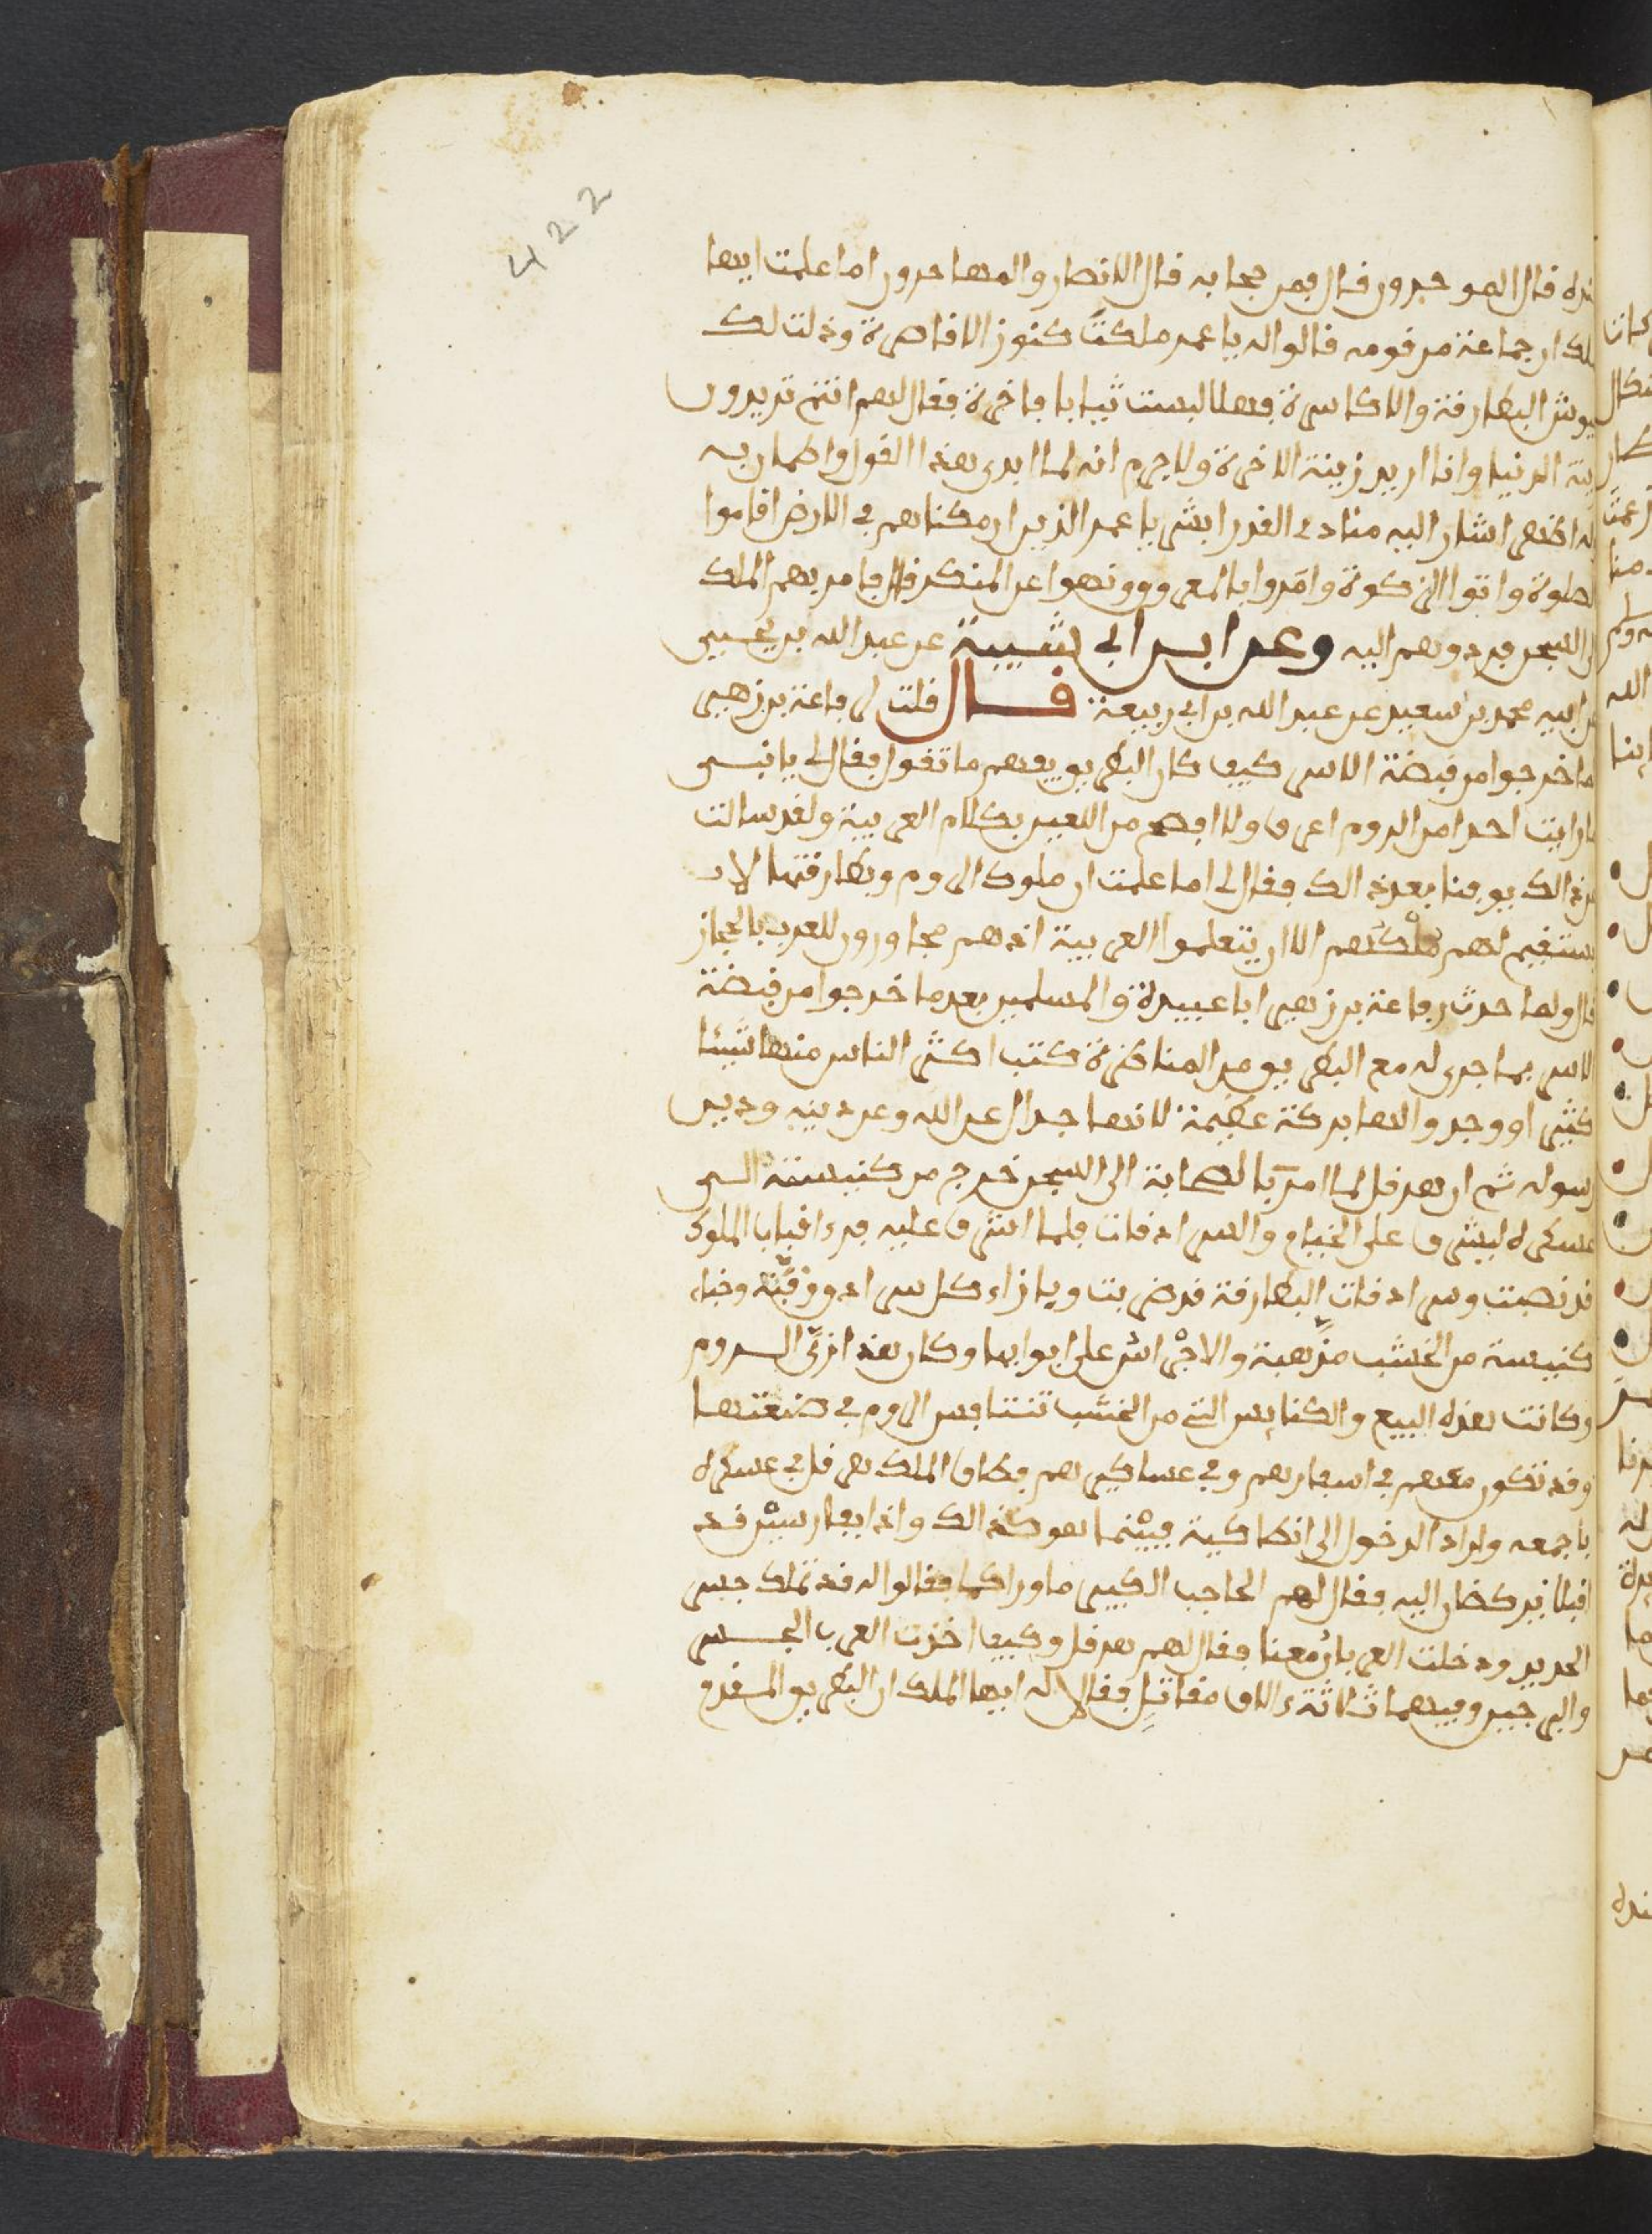 422
جنده قال الموحدون قال فمن حجابه قال الانصار والمهاجرون اما علمت ايها
الملك ان جماعة من قومه قالوا له يا عمر ملكت كنوز الاقاصرة وذلت لك
جيوش البطارقة والاكاسرة فهلا لبست ثيابا فاخرة فقال لهم انتم تريدون
زينة الدنيا وانا اريد زينة الاخرة ولا جرم انه لما ابدى هذا القول واطمار به
له اظهر اشار اليه منادى القدر ابشر يا عمر الذين ان مكناهم في الارض اقاموا
الصلوة واتوا الزكوة وامروا بالمعروف ونهوا عن المنكر قال فامر بهم الملك
الى السجن فردوهم اليه وعن ابن ابي شيبة عن عبد الله بن يحيى
عن ابيه محمد بن سعيد عن عبد الله بن ابي ربيعة قال قلت لرفاعة بن زهير
لما خرجوا من قبضة الاسر كيف كان البطريق يفهم ما تقول فقال لي يا قيس
ما رايت احدا من الروم اعرف ولا افصح من اللعين بكلام العربية ولقد سالت
عن ذالك يوفنا بعد ذالك فقال لي اما علمت ان ملوك الروم وبطارقتها لا
يستقيم لهم ملكهم الا ان يتعلموا العربية اذ هم مجاورون للعرب بالحجاز
قال ولما حدث رفاعة بن زهير ابا عبيدة والمسلمين بعد ما خرجوا من قبضة
الاسر بما جرى له مع البطريق من المناظرة كتب اكثر الناس منها شيئا
كثيرا ووجدوا لها بركة عظيمة لانها جدال عن الله وعن دينه ودين
رسوله ثم ان هرقل لما امر بالصحابة الى السجن خرج من كنيسته الى
عسكره ليشرف على الخيام والسرادقات فلما اشرف عليه فراى قباب الملوك
قد نصبت وسرادقات البطارقة قد ضربت وبازاء كل سرادق وقبة وخباء
كنيسة من الخشب مذهبة والاجراس على ابوابها وكان هذا زي الروم
وكانت هذه البيع والكنايس التي من الخشب تتنافس الروم في صنعتها
وقد تكون معهم في اسفارهم وفي عساكرهم فطاف الملك هرقل في عسكره
باجمعه واراد الدخول الى انطاكية فبينما هو كذالك واذا بفارسين قد
اقبلا يركضان اليه فقال لهم الحاجب الكبير ما وراكما فقالوا له قد تملك جسر
الحديد ودخلت العرب ارضعنا فقال لهم هرقل وكيف اخذت العرب الجسر
والبرجين وفيهما ثلاثة ءالاف مقاتل فقالا له ايها الملك ان البطريق المقدم